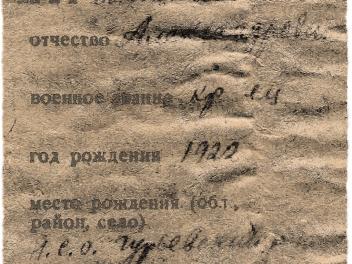 отчество Александрович
военное звание кр-ец
год рождения 1922
место рождения (обл.,
район, село)
А.С.О. Гурьевский